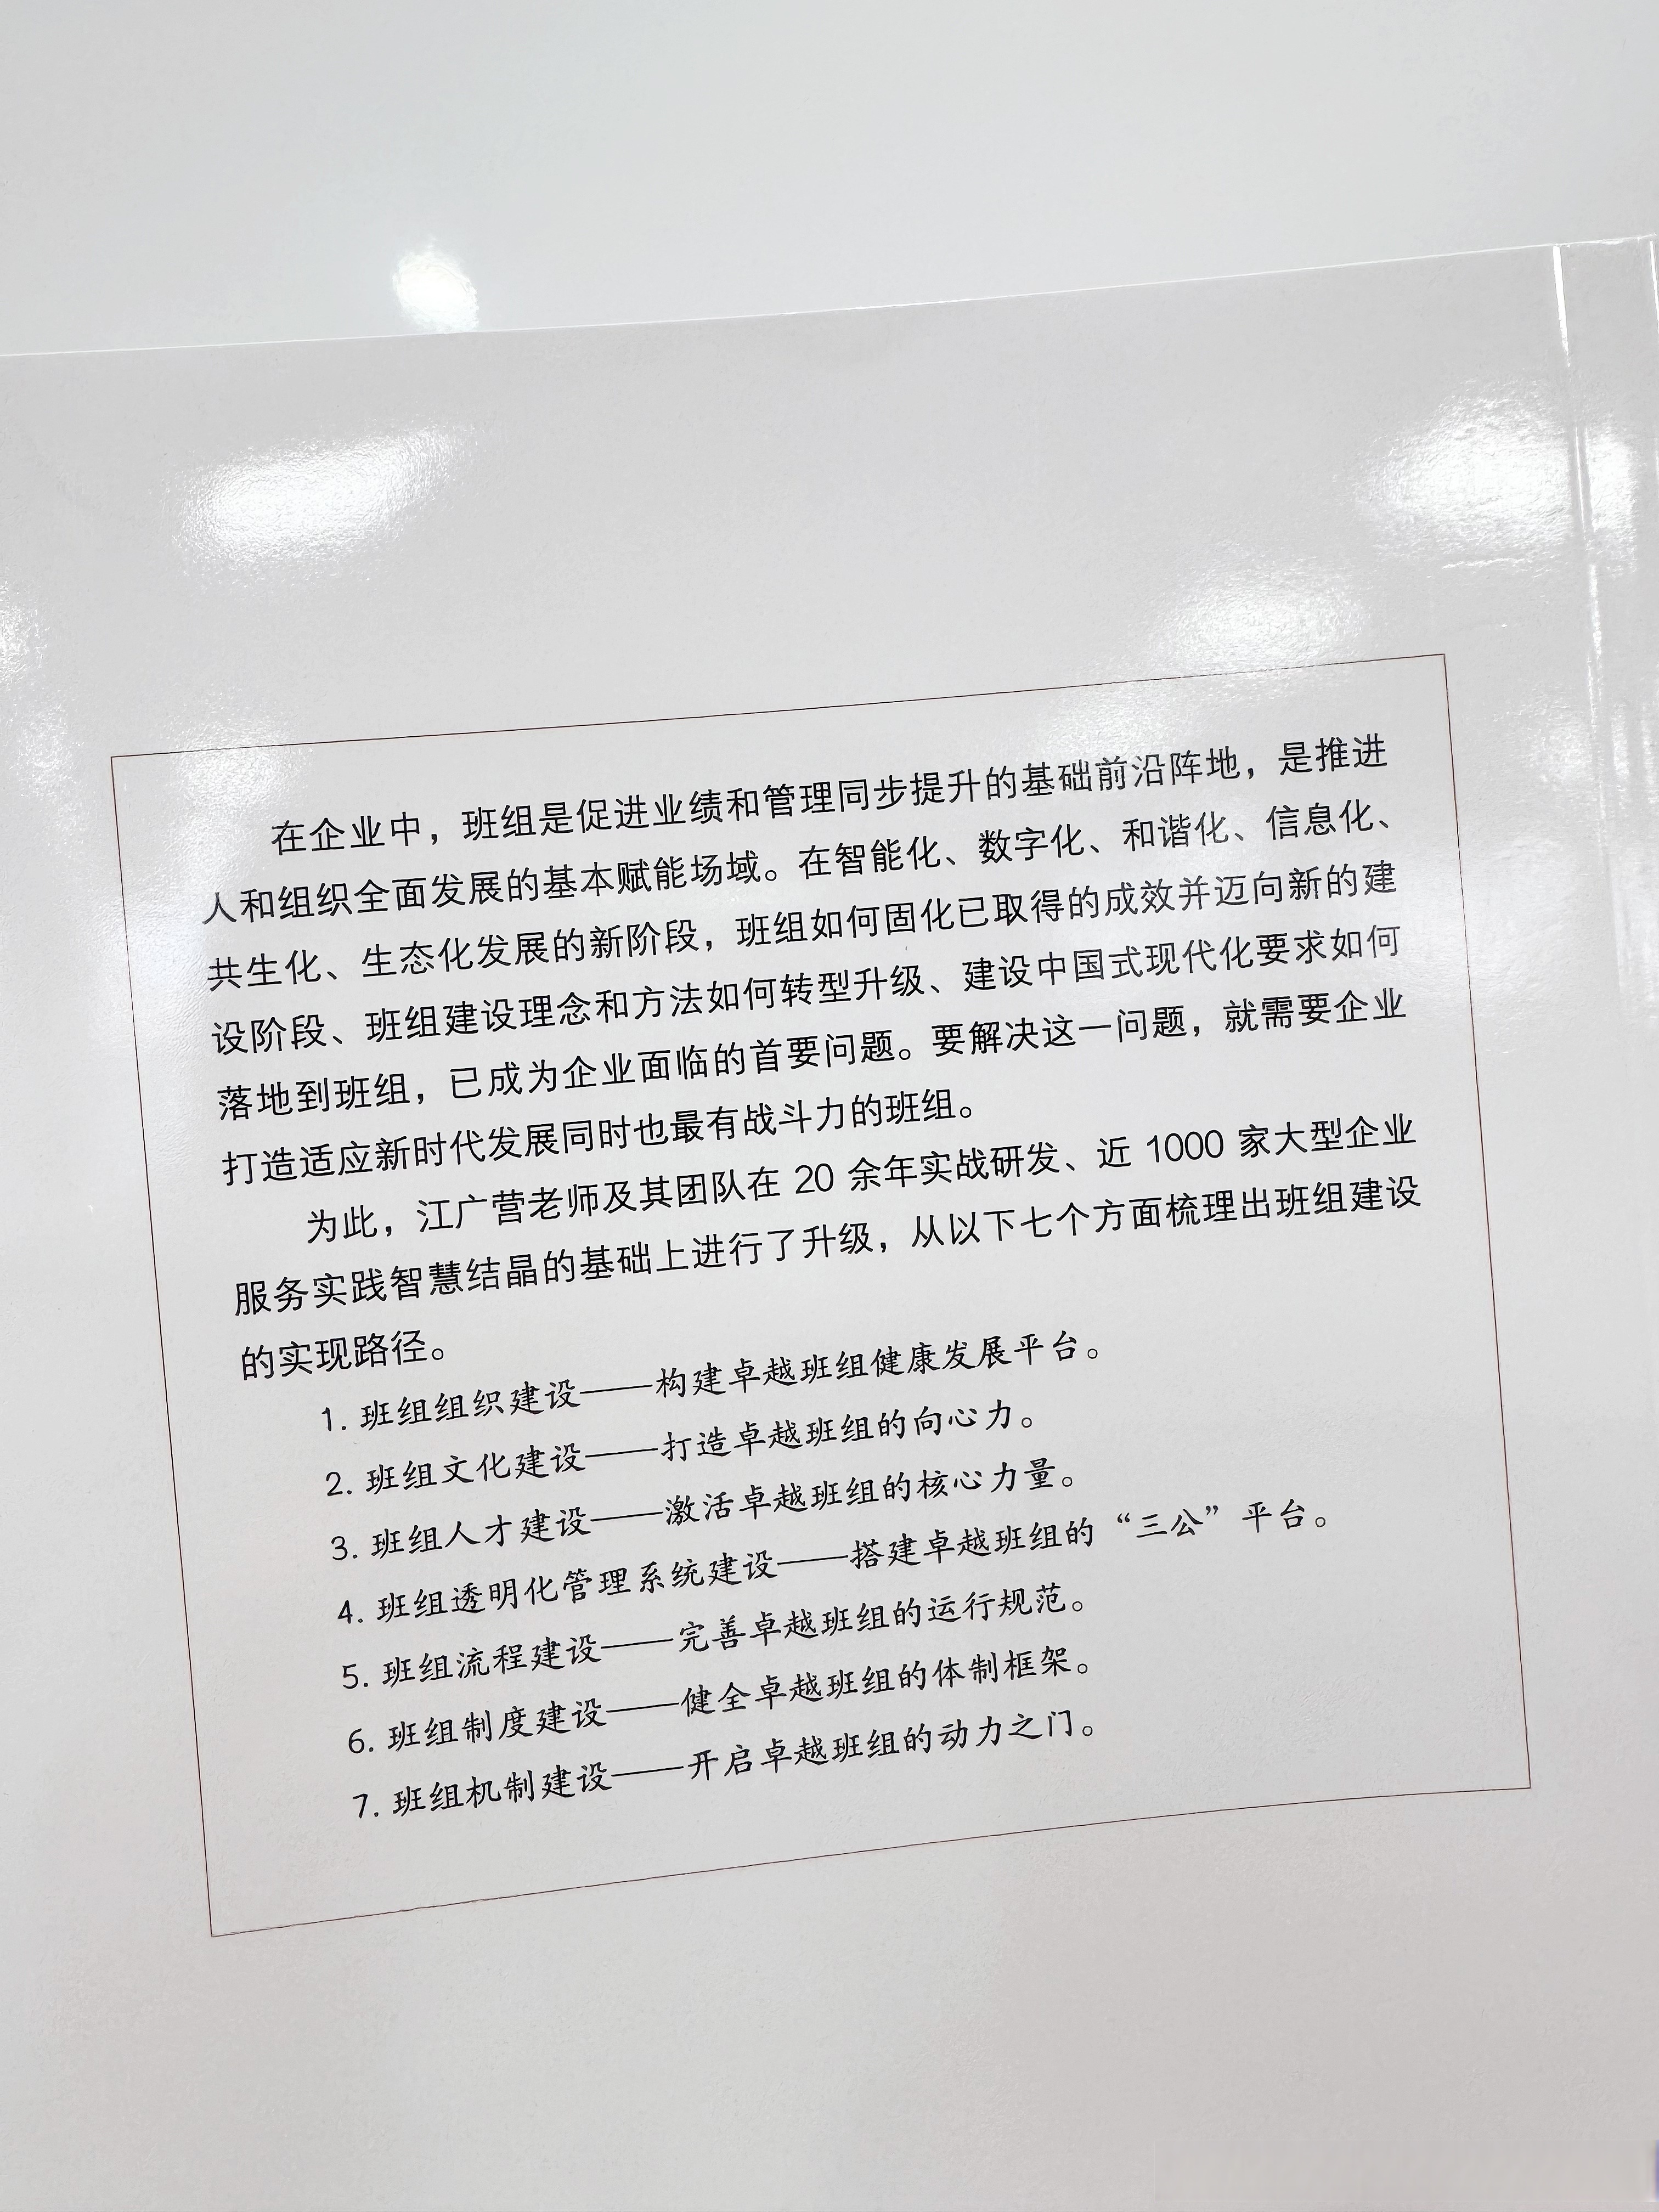 在企业中，班组是促进业绩和管理同步提升的基础前沿阵地，是推进
人和组织全面发展的基本赋能场域。在智能化、数字化、和谐化、信息化、
共生化、生态化发展的新阶段，班组如何固化已取得的成效并迈向新的建
设阶段、班组建设理念和方法如何转型升级、建设中国式现代化要求如何
落地到班组，已成为企业面临的首要问题。要解决这一问题，就需要企业
打造适应新时代发展同时也最有战斗力的班组。
为此，江广营老师及其团队在 20 余年实战研发、近 1000 家大型企业
服务实践智慧结晶的基础上进行了升级，从以下七个方面梳理出班组建设
的实现路径。
1. 班组组织建设——构建卓越班组健康发展平台。
2. 班组文化建设——打造卓越班组的向心力。
3. 班组人才建设——激活卓越班组的核心力量。
4. 班组透明化管理系统建设——搭建卓越班组的“三公”平台。
5. 班组流程建设——完善卓越班组的运行规范。
6. 班组制度建设——健全卓越班组的体制框架。
7. 班组机制建设——开启卓越班组的动力之门。